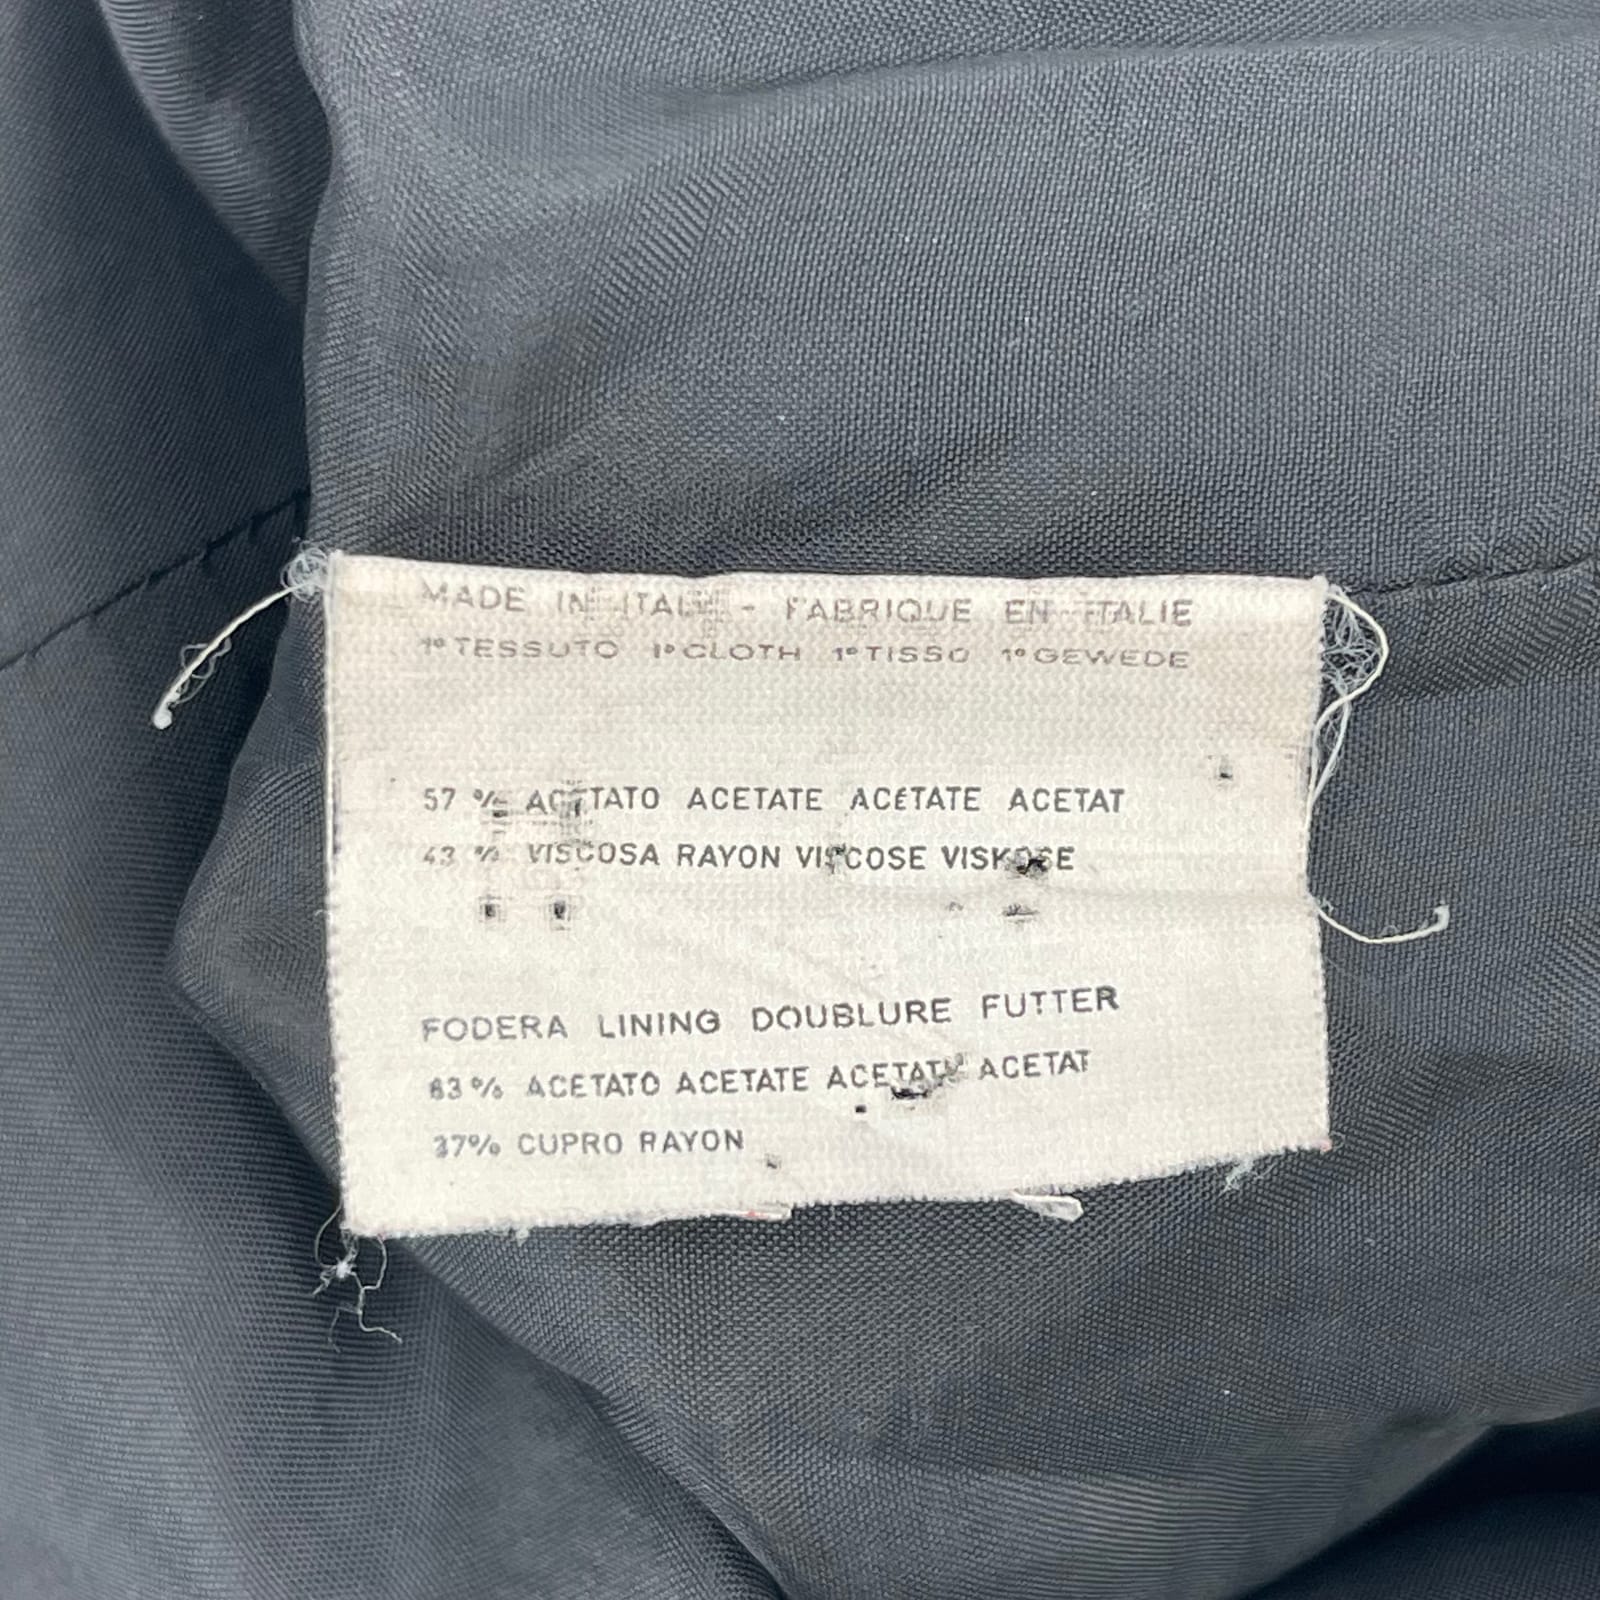 MADE IN ITALY - FABRIQUE EN ITALIE
1º TESSUTO 1º CLOTH 1º TISSO 1º GEWEDE
57 % ACETATO ACETATE ACETATE ACETAT
43 % VISCOSA RAYON VISCOSE VISKOSE
FODERA LINING DOUBLURE FUTTER
63% ACETATO ACETATE ACETATE ACETAT
37% CUPRO RAYON